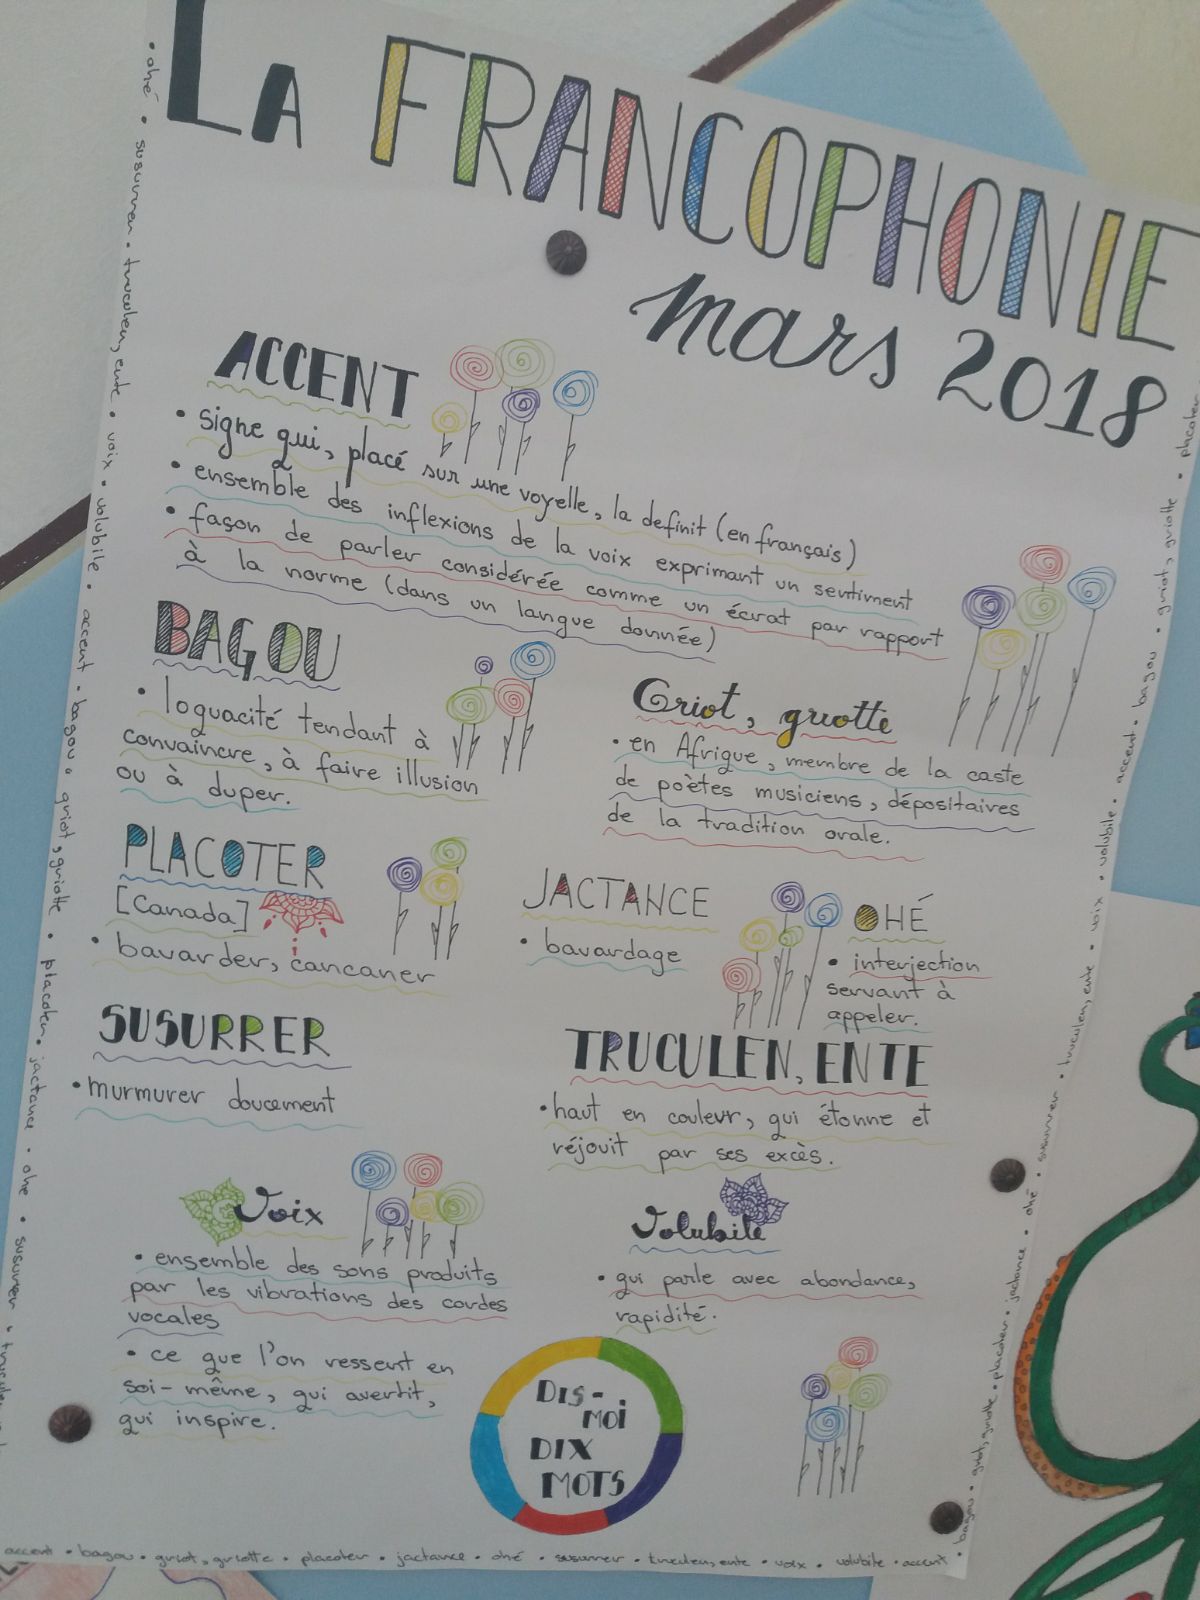 LA FRANCOPHONIE
mars 2018
ACCENT
• signe qui, placé sur une voyelle, la definit (en français)
• ensemble des inflexions de la voix exprimant un sentiment
• façon de parler considérée comme un écrat par rapport
à la norme (dans un langue donnée)
BAGOU
• loguacité tendant à
convaincre, à faire illusion
ou à duper.
Griot, griotte
• en Afrique, membre de la caste
de poètes musiciens, dépositaires
de la tradition orale.
PLACOTER
[Canada]
• bavarder, cancaner
JACTANCE
• bavardage
OHÉ
• interjection
servant à
appeler.
SUSURRER
• murmurer doucement
TRUCULEN, ENTE
• haut en couleur, qui étonne et
réjouit par ses excès.
Voix
• ensemble des sons produits
par les vibrations des cordes
vocales
• ce que l'on ressent en
soi-même, qui avertit,
qui inspire.
Volubile
• qui parle avec abondance,
rapidité.
DIS-
MOI
DIX
MOTS
• ohé • susurrer • truculen, ente • voix • volubile • accent • bagou • griot, griotte • placoter • jactance • ohé • susurrer •
bagou • griot, griotte • placoter • jactance • ohé • susurrer • truculen, ente • voix • volubile • accent • bagou • griot, griotte • placoter
accent • bagou • griot, griotte • placoter • jactance • ohé • susurrer • truculen, ente • voix • volubile • accent •